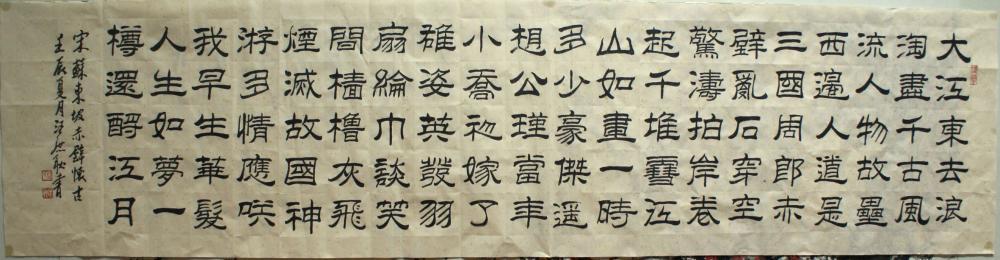 大江東去浪
淘盡千古風
流人物故壘
西邊人道是
三國周郎赤
壁亂石穿空
驚濤拍岸卷
起千堆雪江
山如畫一時
多少豪傑遥
想公瑾當年
小喬初嫁了
雄姿英發羽
扇綸巾談笑
間檣櫓灰飛
煙滅故國神
游多情應咲
我早生華髮
人生如夢一
樽還酹江月
宋蘇東坡赤壁懷古
壬辰夏月